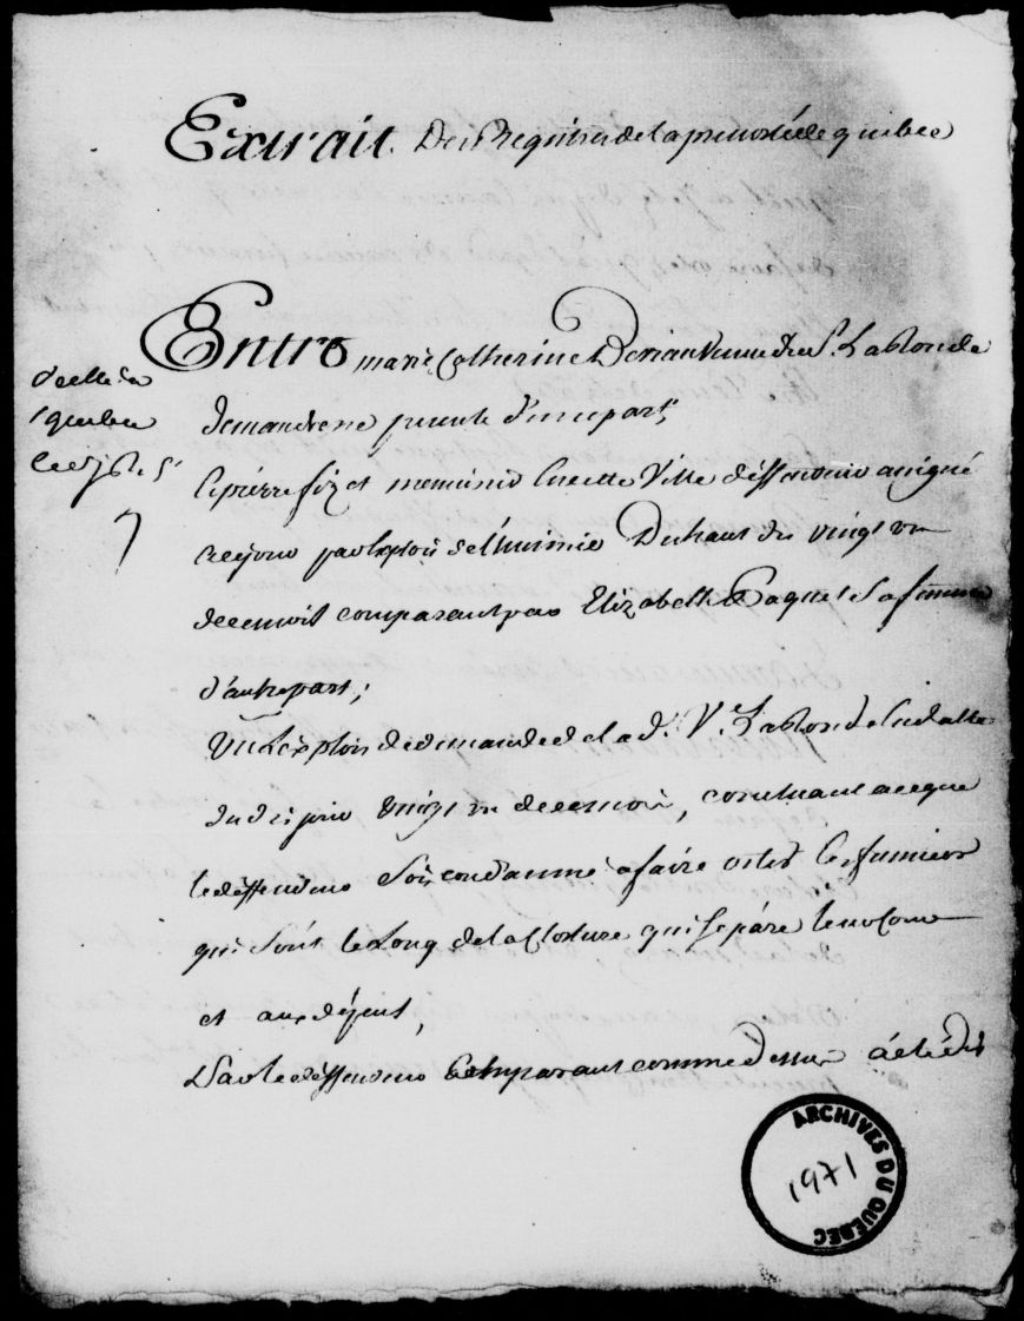 Extrait Des Registres de la prevosté de quebec
Entre marie Catherine Derian Veuve du S.r Lablonde
demanderesse presente d'une part,
le pierre menuisier en cette Ville deffendeur assigné
ce jour par exploit de l'huissier Duhaut du vingt un
decemois comparant par Elizabelle Paquet sa femme
d'autre part;
Vu L'exploit de demande de la d. V.e Lablonde en datte
du dit jour vingt un de ce mois, concluant a ce que
le deffendeur soit condamné a faire oster les fumiers
qui sont le Long de la Closture qui separe leur
et aux depens,
Par le deffendeur Comparant comme dessus á eté dit
ARCHIVES DU QUEBEC
1971